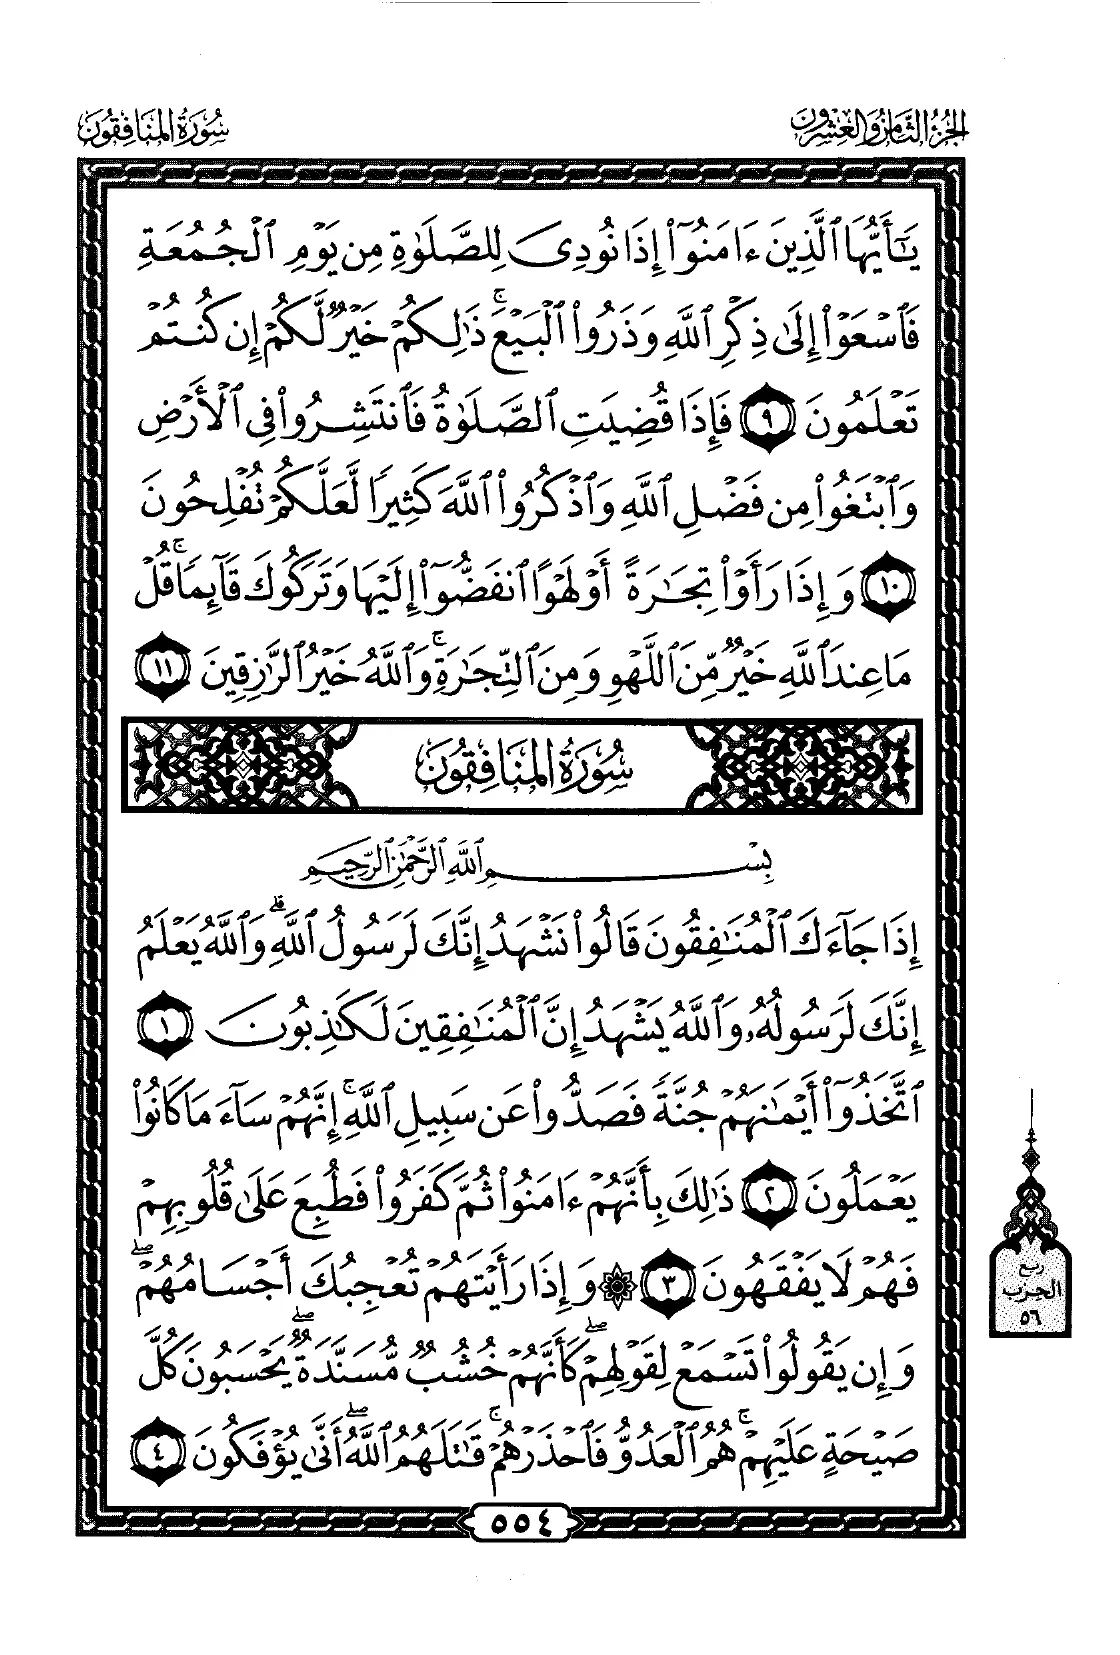 الجزء الثامن والعشرون
سورة المنافقون
يَـٰٓأَيُّهَا ٱلَّذِينَ ءَامَنُوٓا۟ إِذَا نُودِىَ لِلصَّلَوٰةِ مِن يَوْمِ ٱلْجُمُعَةِ
فَٱسْعَوْا۟ إِلَىٰ ذِكْرِ ٱللَّهِ وَذَرُوا۟ ٱلْبَيْعَ ۚ ذَٰلِكُمْ خَيْرٌ لَّكُمْ إِن كُنتُمْ
تَعْلَمُونَ ٩ فَإِذَا قُضِيَتِ ٱلصَّلَوٰةُ فَٱنتَشِرُوا۟ فِى ٱلْأَرْضِ
وَٱبْتَغُوا۟ مِن فَضْلِ ٱللَّهِ وَٱذْكُرُوا۟ ٱللَّهَ كَثِيرًا لَّعَلَّكُمْ تُفْلِحُونَ
١٠ وَإِذَا رَأَوْا۟ تِجَـٰرَةً أَوْ لَهْوًا ٱنفَضُّوٓا۟ إِلَيْهَا وَتَرَكُوكَ قَآئِمًا ۚ قُلْ
مَا عِندَ ٱللَّهِ خَيْرٌ مِّنَ ٱللَّهْوِ وَمِنَ ٱلتِّجَـٰرَةِ ۚ وَٱللَّهُ خَيْرُ ٱلرَّٰزِقِينَ ١١
سورة المنافقون
بِسْمِ ٱللَّهِ ٱلرَّحْمَـٰنِ ٱلرَّحِيمِ
إِذَا جَآءَكَ ٱلْمُنَـٰفِقُونَ قَالُوا۟ نَشْهَدُ إِنَّكَ لَرَسُولُ ٱللَّهِ ۗ وَٱللَّهُ يَعْلَمُ
إِنَّكَ لَرَسُولُهُۥ وَٱللَّهُ يَشْهَدُ إِنَّ ٱلْمُنَـٰفِقِينَ لَكَـٰذِبُونَ ١
ٱتَّخَذُوٓا۟ أَيْمَـٰنَهُمْ جُنَّةً فَصَدُّوا۟ عَن سَبِيلِ ٱللَّهِ ۚ إِنَّهُمْ سَآءَ مَا كَانُوا۟
يَعْمَلُونَ ٢ ذَٰلِكَ بِأَنَّهُمْ ءَامَنُوا۟ ثُمَّ كَفَرُوا۟ فَطُبِعَ عَلَىٰ قُلُوبِهِمْ
فَهُمْ لَا يَفْقَهُونَ ٣ ۞ وَإِذَا رَأَيْتَهُمْ تُعْجِبُكَ أَجْسَامُهُمْ ۖ
وَإِن يَقُولُوا۟ تَسْمَعْ لِقَوْلِهِمْ ۖ كَأَنَّهُمْ خُشُبٌ مُّسَنَّدَةٌ ۖ يَحْسَبُونَ كُلَّ
صَيْحَةٍ عَلَيْهِمْ ۚ هُمُ ٱلْعَدُوُّ فَٱحْذَرْهُمْ ۚ قَـٰتَلَهُمُ ٱللَّهُ ۖ أَنَّىٰ يُؤْفَكُونَ ٤
ربع
الحزب
٥٦
٥٥٤